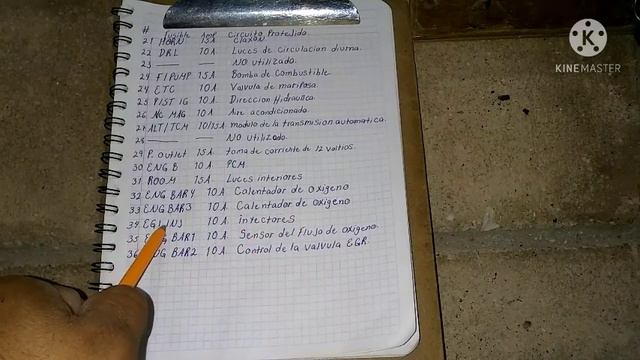 # Fusible Amp Circuito Protegido.
21 HORN 15A Claxon
22 DRL 10A Luces de Circulacion diurna.
23 —— — NO utilizado.
24 F/PUMP 15A Bomba de Combustible
24 ETC 10A Valvula de mariposa.
25 P/ST IG 10A Direccion Hidraulica.
26 NC MAG 10A Aire acondicionado
27 ALT/TCM 10/15A modulo de la transmision automatica.
28 —— — NO utilizado.
29 P. outlet 15A toma de corriente de 12 voltios.
30 ENG B 10A PCM.
31 ROOM 15A Luces interiores
32 ENG BAR4 10A Calentador de oxigeno
33 ENG BAR3 10A Calentador de oxigeno
34 EGI INJ 10A intectores
35 BAR1 10A Sensor del Flujo de oxigeno.
36 BAR2 10A Control de la valvula EGR.
K
KINEMASTER